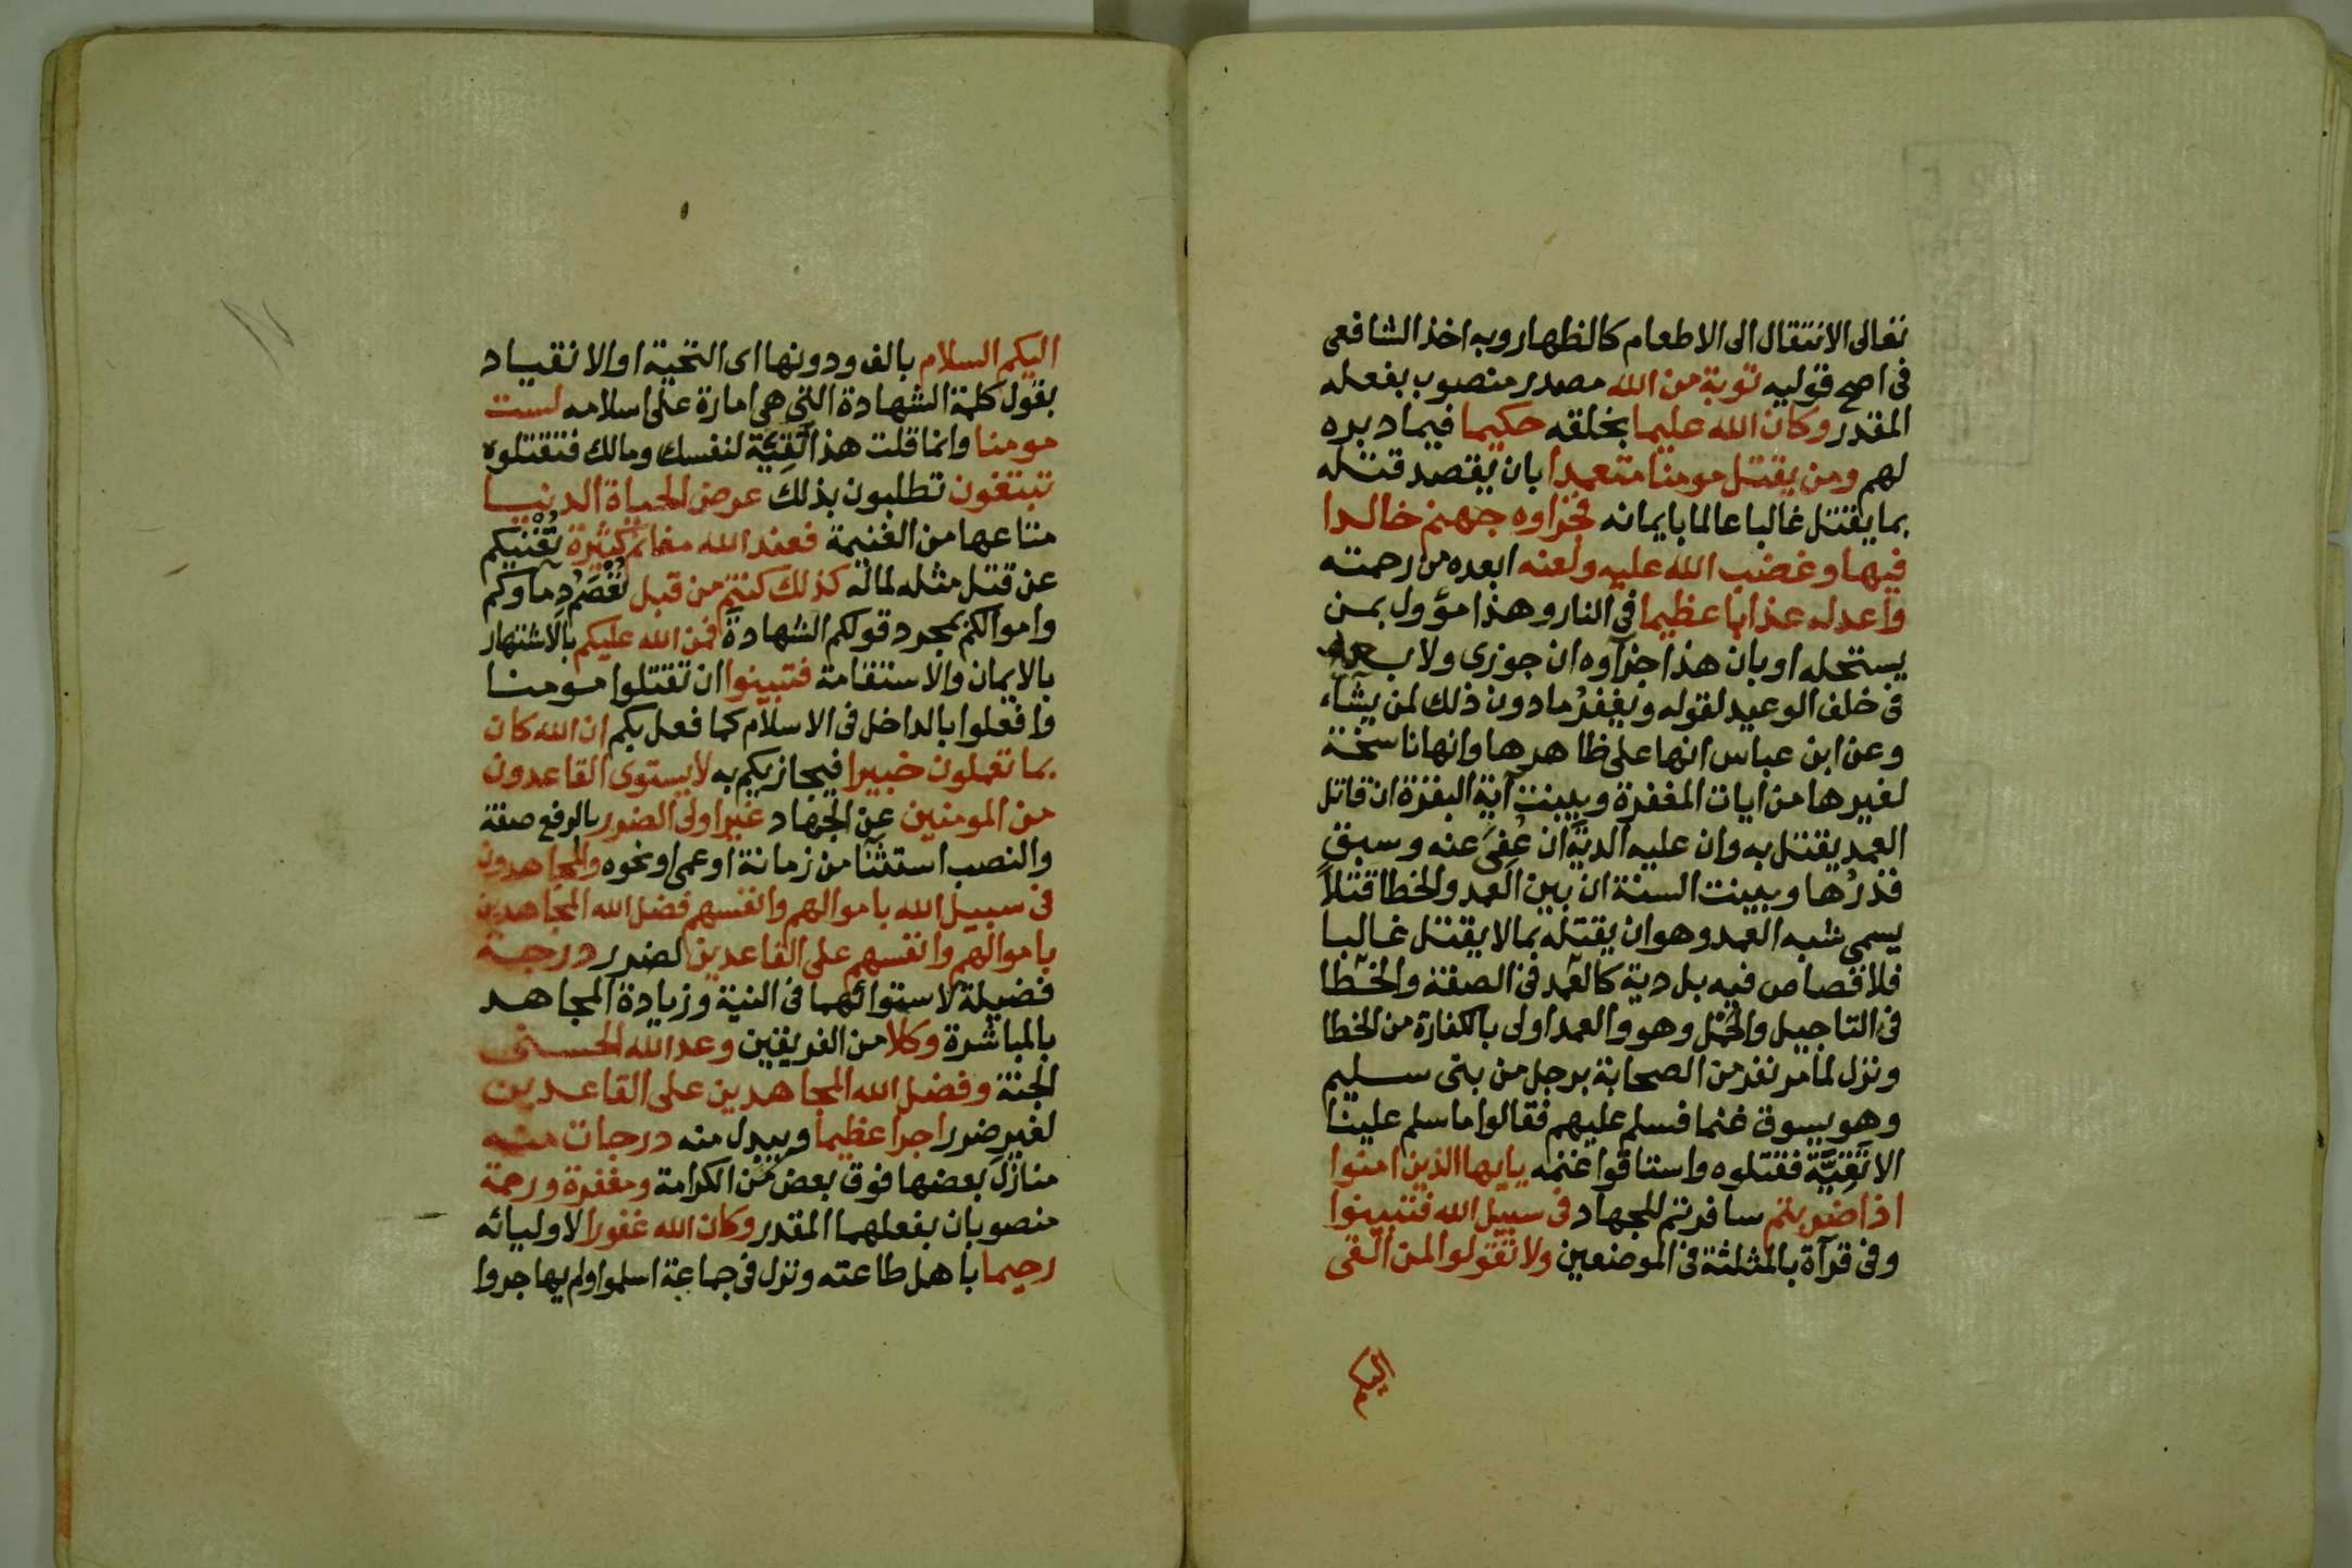 تعالى الانتقال الى الاطعام كالظهار وبه اخذ الشافعى
فى اصح قوليه توبة من الله مصدر منصوب بفعله
المقدر وكان الله عليما بخلقه حكيما فيما دبره
لهم ومن يقتل مومنا متعمدا بان يقصد قتله
بما يقتل غالبا عالما بايمانه فجزاوه جهنم خالدا
فيها وغضب الله عليه ولعنه ابعده من رحمته
واعد له عذابا عظيما فى النار وهذا مؤول بمن
يستحله او بان هذا جزآوه ان جوزى ولا بدع
فى خلف الوعيد لقوله ويغفرُ ما دون ذلك لمن يشآء
وعن ابن عباس انها على ظاهرها وانها ناسخة
لغيرها من ايات المغفرة وبينت آية البقرة ان قاتل
العمد يقتل به وان عليه الديّة ان عُفِىَ عنه وسبق
قدرُها وبينت السنة ان بين العمد والخطا قتلاً
يسمى شبه العمد وهو ان يقتله بما لا يقتل غالبا
فلا قصاص فيه بل دية كالعمد فى الصفة والخطا
فى التاجيل والحمل وهو والعمد اولى بالكفارة من الخطا
ونزل لما مر نفر من الصحابة برجل من بنى سليم
وهو يسوق غنما فسلم عليهم فقالوا ما سلم علينا
الا تَقِيَّة فقتلوه واستاقوا غنمه يايها الذين امنوا
اذا ضربتم سافرتم للجهاد فى سبيل الله فتبينوا
وفى قرآة بالمثلثة فى الموضعين ولا تقولوا لمن القى
اليكم
اليكم السلام بالف ودونها اى التحية او الانقياد
بقول كلمة الشهادة التى هى امارة على اسلامه لست
مومنا وانما قلت هذا تَقِيَّة لنفسك ومالك فتقتلوه
تبتغون تطلبون بذلك عرض الحياة الدنيا
متاعها من الغنيمة فعند الله مغانم كثيرة تُغْنيكم
عن قتل مثله لماله كذلك كنتم من قبل تُعْصَمُ دِماوكم
واموالكم بمجرد قولكم الشهادة فمن الله عليكم بالاشتهار
بالايمان والاستقامة فتبينوا ان تقتلوا مومنا
وافعلوا بالداخل فى الاسلام كما فعل بكم ان الله كان
بما تعملون خبيرا فيجازيكم به لا يستوى القاعدون
من المومنين عن الجهاد غير اولى الضرر بالرفع صفة
والنصب استثنا من زمانة او عمى او نحوه والمجاهدون
فى سبيل الله باموالهم وانفسهم فضل الله المجاهدين
باموالهم وانفسهم على القاعدين لضرر درجة
فضيلة لاستوائهما فى النية وزيادة المجاهد
بالمباشرة وكلا من الفريقين وعد الله الحسنى
الجنة وفضل الله المجاهدين على القاعدين
لغير ضرر اجرا عظيما ويبدل منه درجات منه
منازل بعضها فوق بعض من الكرامة ومغفرة ورحمة
منصوبان بفعلهما المقدر وكان الله غفورا لاوليائه
رحيما باهل طاعته ونزل فى جماعة اسلموا ولم يهاجروا